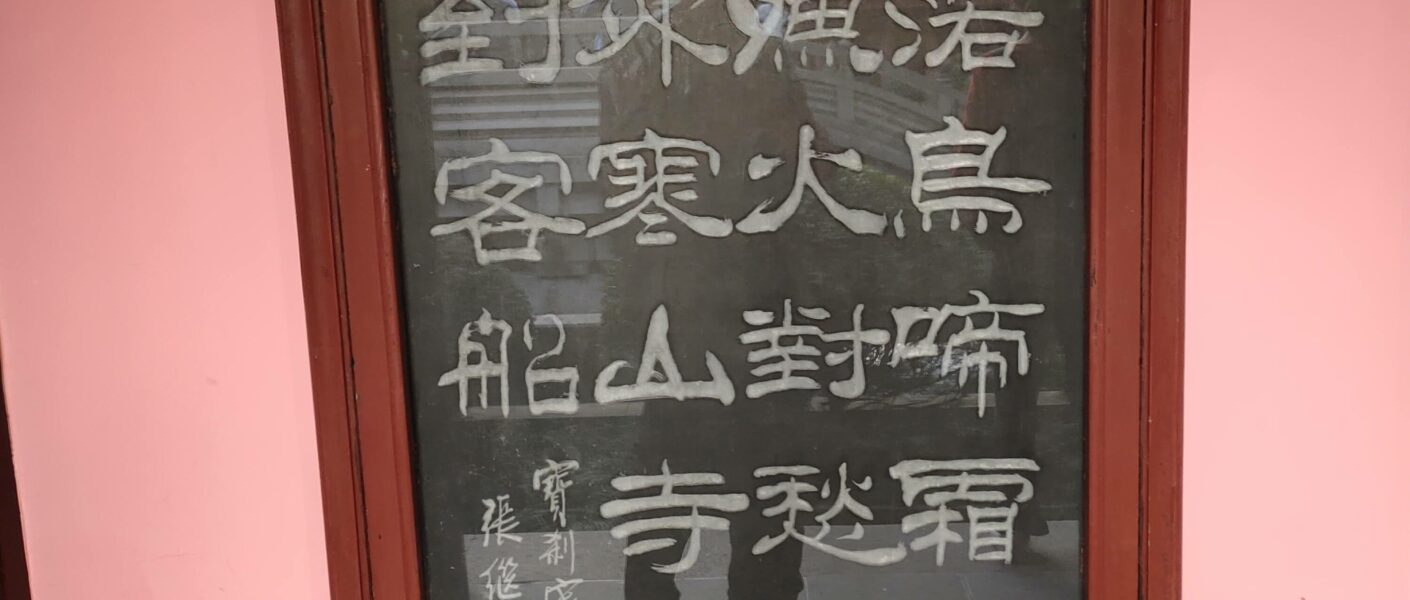 落烏啼霜
漁火對愁
外寒山寺
到客船
寶刹
張繼